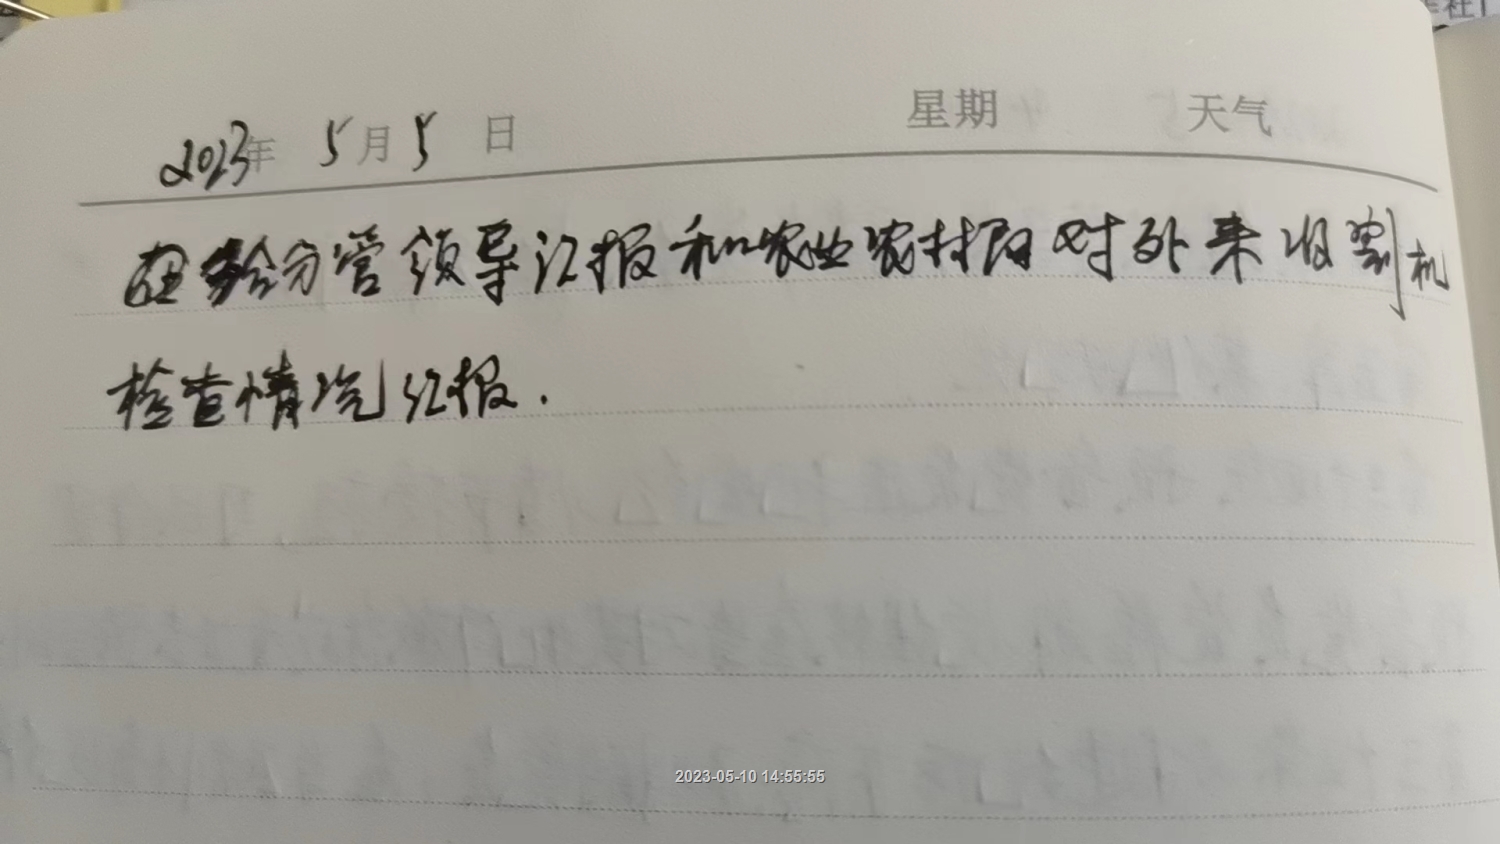 2023年 5月5日 星期 天气
给分管领导汇报和农业农村局对外来收割机
检查情况汇报.
2023-05-10 14:55:55